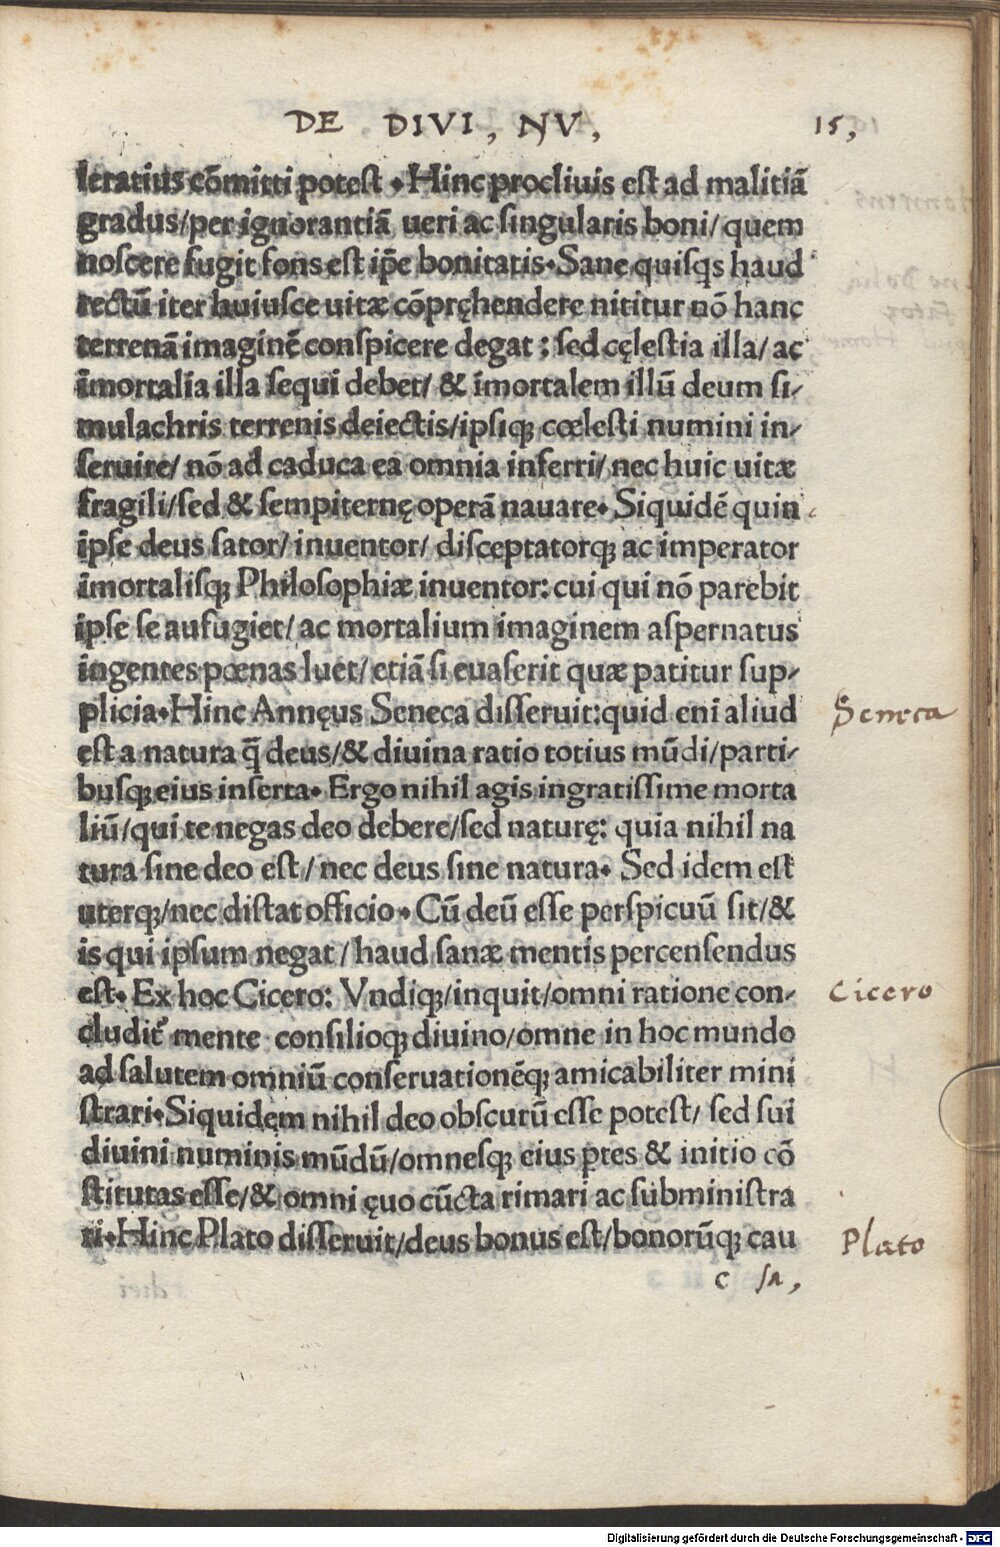 DE DIVI, NV, 15,
leratius cõmitti potest • Hinc procliuis est ad malitiã
gradus/per ignorantiã ueri ac singularis boni/ quem
noscere fugit fons est ip̃e bonitatis•Sane quisqs haud
rectũ iter huiusce uitæ cõpręhendere nititur nõ hanc
terrenã imaginẽ conspicere degat : sed cęlestia illa/ ac
ĩmortalia illa sequi debet/ & ĩmortalem illũ deum si/
mulachris terrenis deiectis/ipsiqꝫ cœlesti numini in/
seruire/ nõ ad caduca ea omnia inferri/ nec huic uitæ
fragili/sed & sempiternę operã nauare• Siquidẽ quin
ipse deus sator/ inuentor/ disceptatorqꝫ ac imperator
ĩmortalisqꝫ Philosophiæ inuentor: cui qui nõ parebit
ipse se aufugiet/ ac mortalium imaginem aspernatus
ingentes pœnas luet/ etiã si euaserit quæ patitur sup/
plicia•Hinc Annęus Seneca disseruit:quid eni aliud
Seneca
est a natura q̃ deus/& diuina ratio totius mũdi/parti/
busqꝫ eius inserta• Ergo nihil agis ingratissime morta
liũ/qui te negas deo debere/sed naturę: quia nihil na
tura sine deo est/ nec deus sine natura• Sed idem est
uterqꝫ/nec distat officio• Cũ deũ esse perspicuũ sit/&
is qui ipsum negat/haud sanæ mentis percensendus
est• Ex hoc Cicero: Vndiqꝫ/inquit/omni ratione con/
Cicero
cludit᷑ mente consilioqꝫ diuino/omne in hoc mundo
ad salutem omniũ conseruationẽqꝫ amicabiliter mini
strari•Siquidem nihil deo obscurũ esse potest/ sed sui
diuini numinis mũdũ/omnesqꝫ eius ꝑtes & initio cõ
stitutas esse/& omni ęuo cũcta rimari ac subministra
ri•Hinc Plato disseruit/deus bonus est/bonorũqꝫ cau
Plato
c sa,
Digitalisierung gefördert durch die Deutsche Forschungsgemeinschaft - DFG